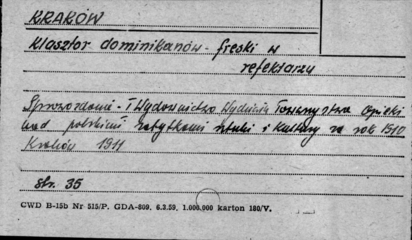 KRAKÓW
Klasztor dominikanów - freski w
refektarzu
Sprawozdanie - I Wydawnictwo Wydziału Towarzystwa Opieki
nad polskimi zabytkami sztuki i kultury za rok 1910
Kraków 1911
str. 35
CWD B-15b Nr 515/P. GDA-809. 6.2.59. 1.000.000 karton 180/V.